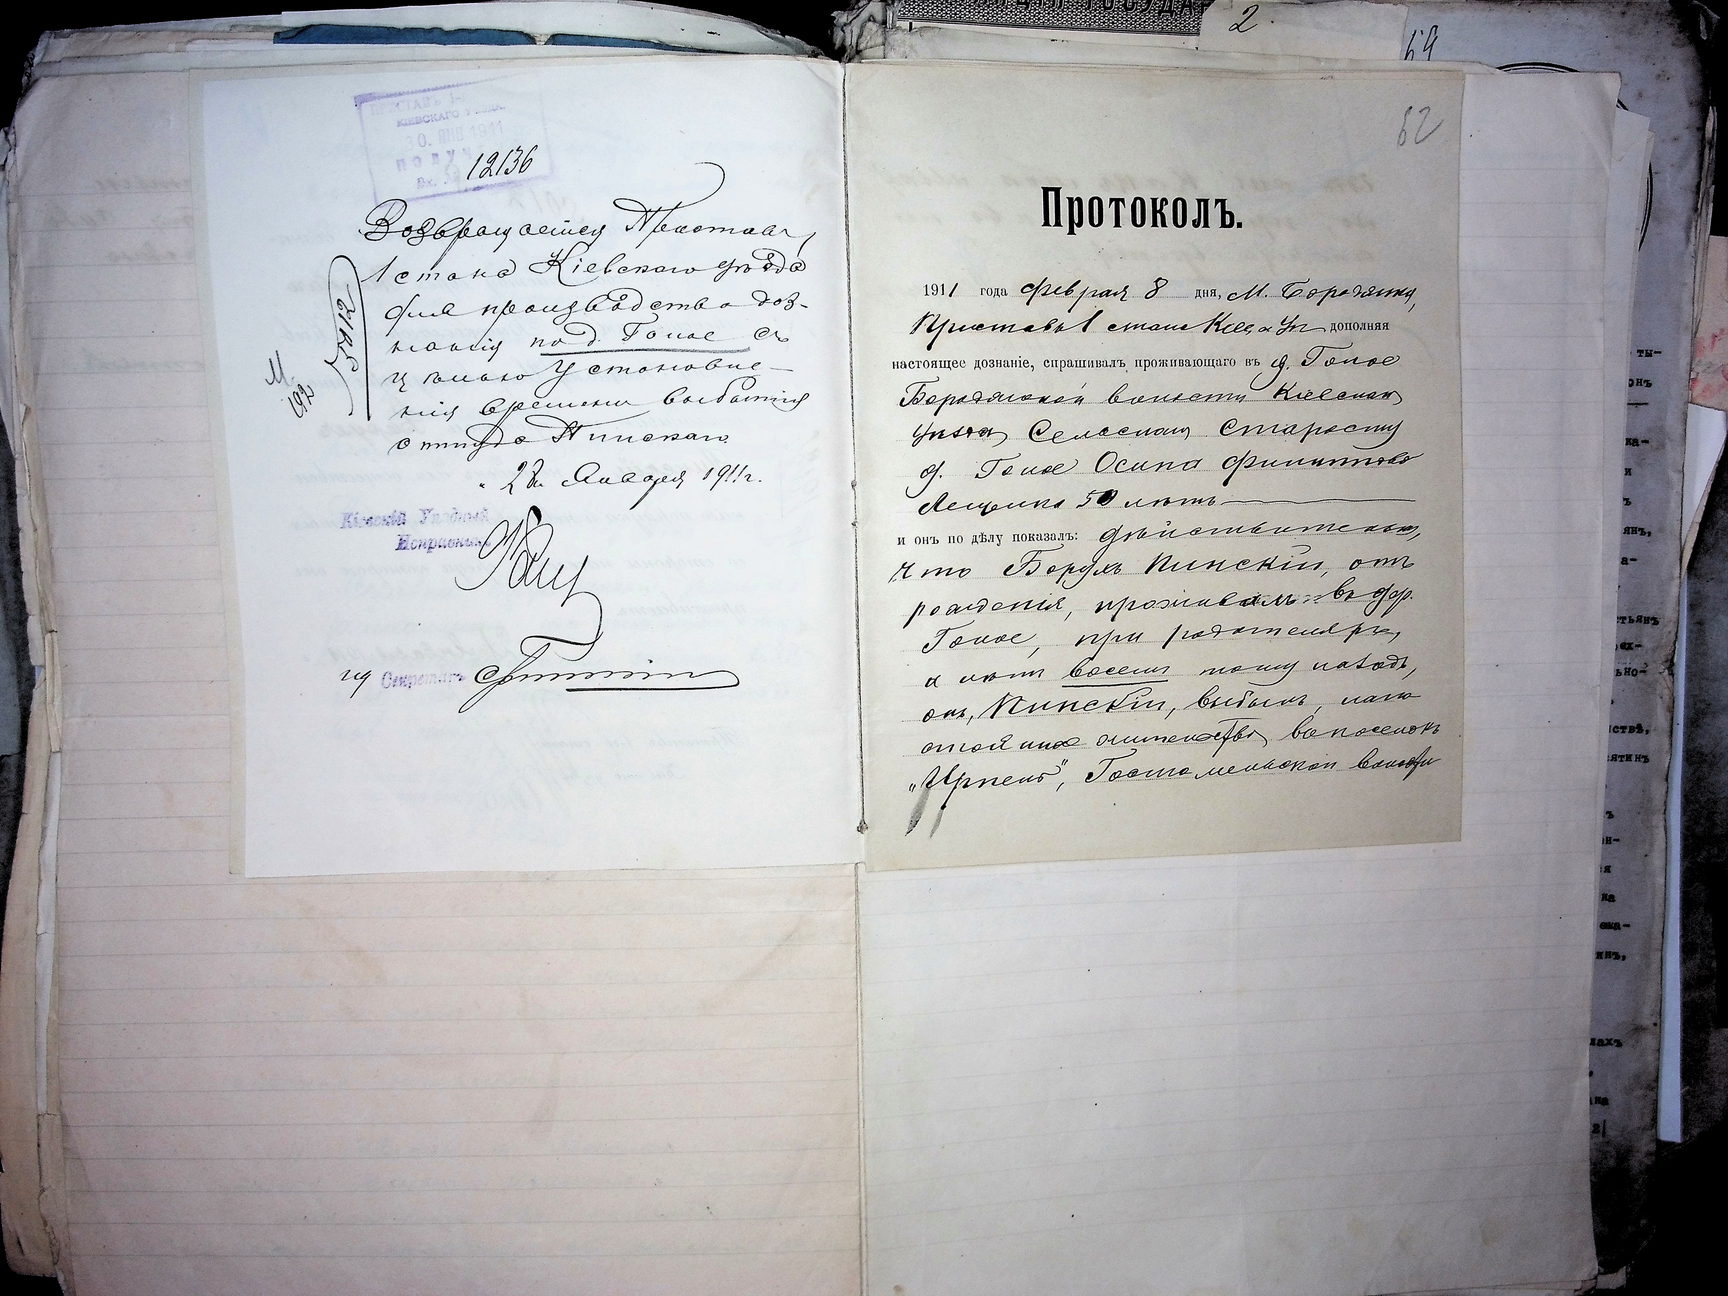 КІЕВСКАГО
1911
12136
Возвращается Приставу
1 стана Кіевскаго уѣзда
для производства доз-
нанія по д. Гопое съ
цѣлью установле-
нія времени выбытія
оттуда Пинскаго
28 Января 1911 г.
Кіевскій Уѣздный
Исправникъ
Секретарь
2
64
62
Протоколъ.
1911 года Февраля 8 дня, М. Бородянка,
Приставъ 1 стана Кіев. у. дополняя
настоящее дознаніе, спрашивалъ проживающаго въ д. Гопое
Бородянской волости Кіевскаго
уѣзда Сельскаго Старосту
д. Гопое Осипа Филиппова
Лещенка 50 лѣтъ
и онъ по дѣлу показалъ: Дѣйствительно,
что Борухъ Пинскій, отъ
рожденія, проживалъ въ дер.
Гопое, при родителяхъ,
а лѣтъ восемь тому назадъ,
онъ, Пинскій, выбылъ, на
жительство въ поселокъ
"Ирпень", Гостомельской волости